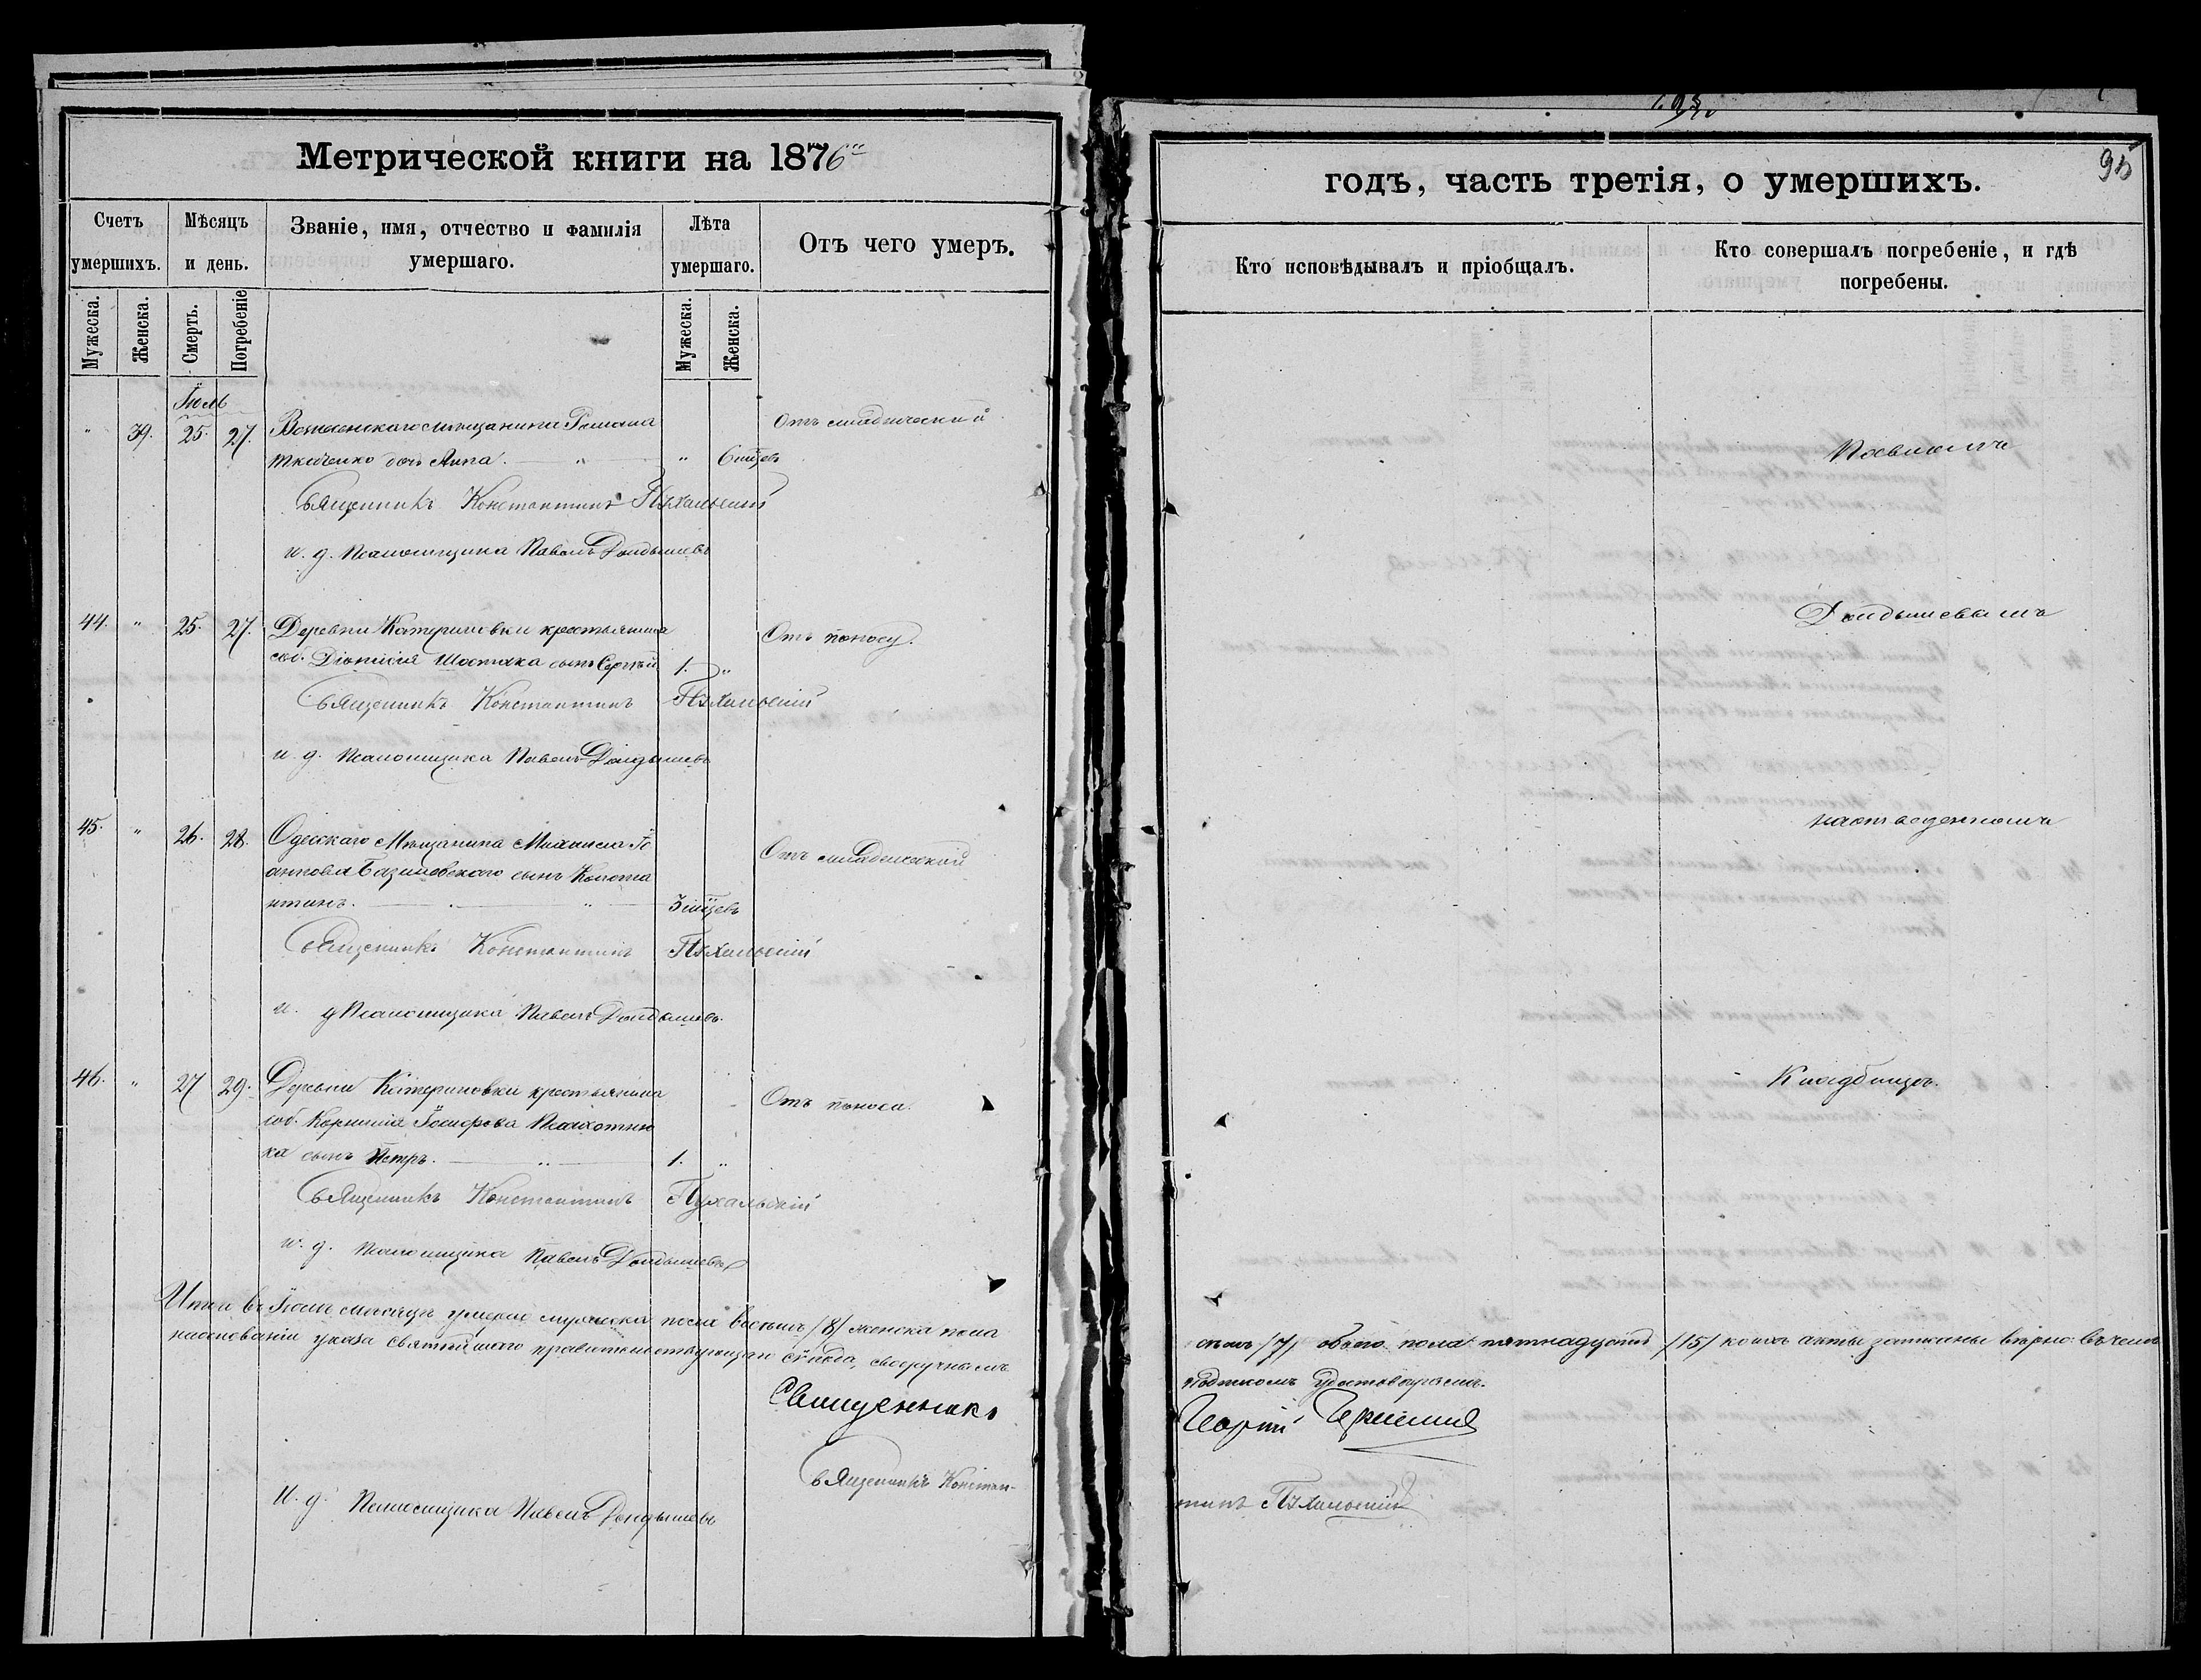 Метрической книги на 1876
годъ, часть третія, о умершихъ.
95
Счетъ умершихъ.
Мѣсяцъ и день.
Званіе, имя, отчество и фамилія умершаго.
Лѣта умершаго.
Отъ чего умеръ.
Кто исповѣдывалъ и пріобщалъ.
Кто совершалъ погребеніе, и гдѣ погребены.
Мужеска.
Женска.
Смерть.
Погребеніе
Мужеска.
Женска.
Іюль
" 39. 25. 27. мѣщанина Романа Отъ младенческий
Ткаченко дочь Анна. " " 6 мцев
Священникъ Константинъ Пухальскій
и. д. Псаломщика Павелъ Дондышевъ
44. " 25. 27. Деревни Катериновки крестьянина Отъ поносу.
соб. Діонисія Шостака сынъ Сергѣй 1. "
Священникъ Константинъ Пухальскій
и. д. Псаломщика Павелъ Дондышевъ
Дондышевымъ
45. " 26. 28. Одесскаго Мѣщанина Михаила Іо Отъ младенческой
антова Базилевского сынъ Конста
нтинъ. " 3 мцевъ
Священникъ Константинъ Пухальскій
и. д Псаломщика Павелъ Дондышевъ.
46. " 27 29. Деревни Катериновки крестьянина Отъ поноса.
соб. Корнилія
ка сынъ Петръ. " 1. "
Священникъ Константинъ Пухальскій
и. д. Псаломщика Павелъ Дондышевъ
Кладбищѣ.
Итого въ Іюлѣ месяцѣ умерло мужеска пола восемь /8/ женска пола
семь /7/ обоего пола пятнадцать /15/ коихъ акты записаны вѣрно въ чемъ
на основаніи указа святѣйшаго правительствующаго сѵнода, своеручнымъ
подписомъ удостоверяемъ.
Священникъ Георгій
Священникъ Констан-
тинъ Пухальскій
И. д. Псаломщика Павелъ Дондышевъ